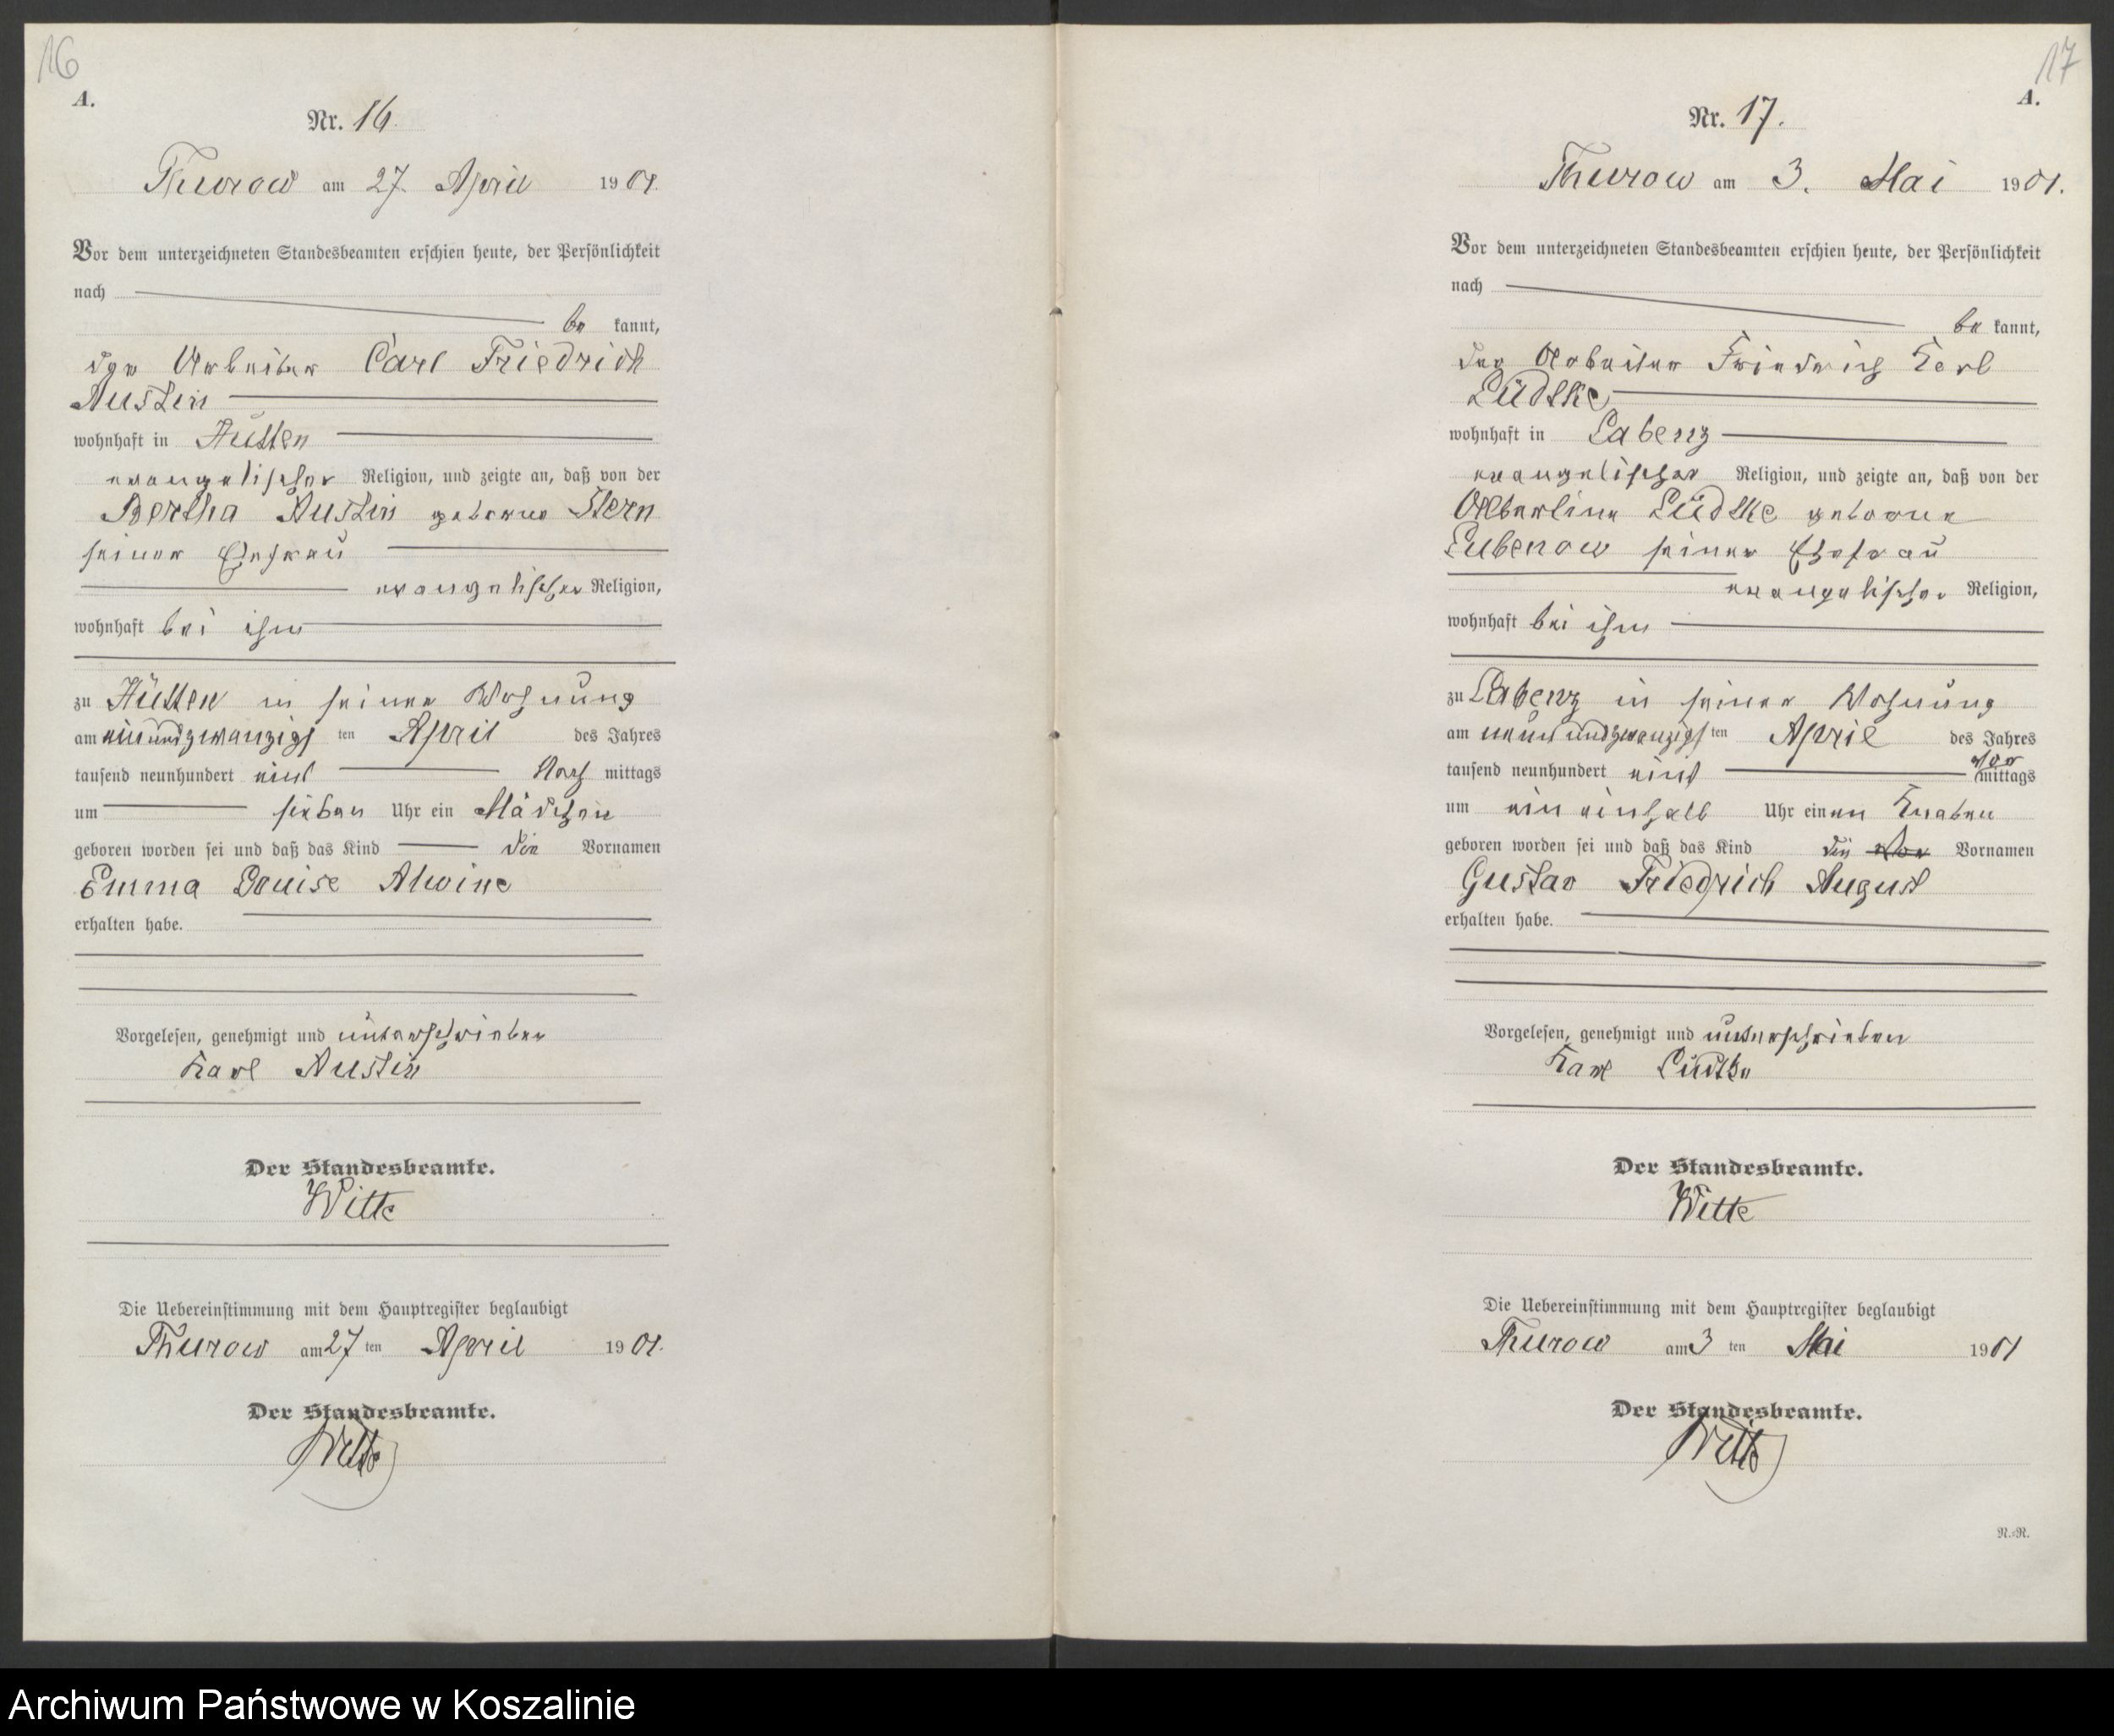 16
A.
Nr. 16.
Thurow am 27. April 1901.
Vor dem unterzeichneten Standesbeamten erschien heute, der Persönlichkeit
nach
be kannt,
der Arbeiter Carl Friedrich
Austin
wohnhaft in Hütten
evangelischer Religion, und zeigte an, daß von der
Bertha Austin geborne Stern
seiner Ehefrau
evangelischer Religion,
wohnhaft bei ihm
zu Hütten in seiner Wohnung
am einundzwanzigsten April des Jahres
tausend neunhundert eins Nach mittags
um sieben Uhr ein Mädchen
geboren worden sei und daß das Kind die Vornamen
Emma Louise Alwine
erhalten habe.
Vorgelesen, genehmigt und unterschrieben
Karl Austin
Der Standesbeamte.
Witte
Die Uebereinstimmung mit dem Hauptregister beglaubigt
Thurow am 27 ten April 1901.
Der Standesbeamte.
Witte
17
A.
Nr. 17.
Thurow am 3. Mai 1901.
Vor dem unterzeichneten Standesbeamten erschien heute, der Persönlichkeit
nach
be kannt,
der Arbeiter Friedrich Karl
Lüdtke
wohnhaft in Labenz
evangelischer Religion, und zeigte an, daß von der
Albertine Lüdtke geborne
Lubenow seiner Ehefrau
evangelischer Religion,
wohnhaft bei ihm
zu Labenz in seiner Wohnung
am neunundzwanzigsten April des Jahres
tausend neunhundert eins Vor mittags
um ein einhalb Uhr einen Knaben
geboren worden sei und daß das Kind die Vornamen
Gustav Friedrich August
erhalten habe.
Vorgelesen, genehmigt und unterschrieben
Karl Lüdtke
Der Standesbeamte.
Witte
Die Uebereinstimmung mit dem Hauptregister beglaubigt
Thurow am 3 ten Mai 1901
Der Standesbeamte.
Witte
N.=N.
Archiwum Państwowe w Koszalinie